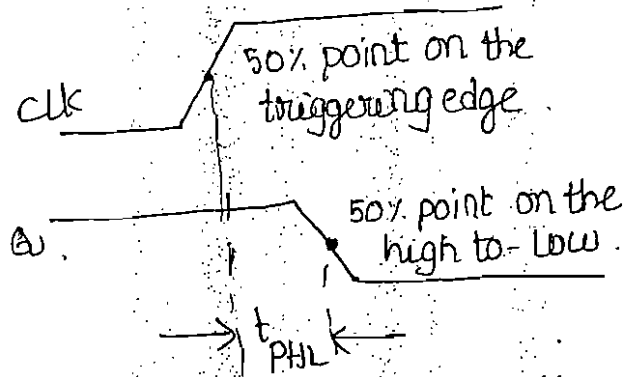 50% point on the
clk
triggering edge.
50% point on the
Q.
high to-Low.
t PHL